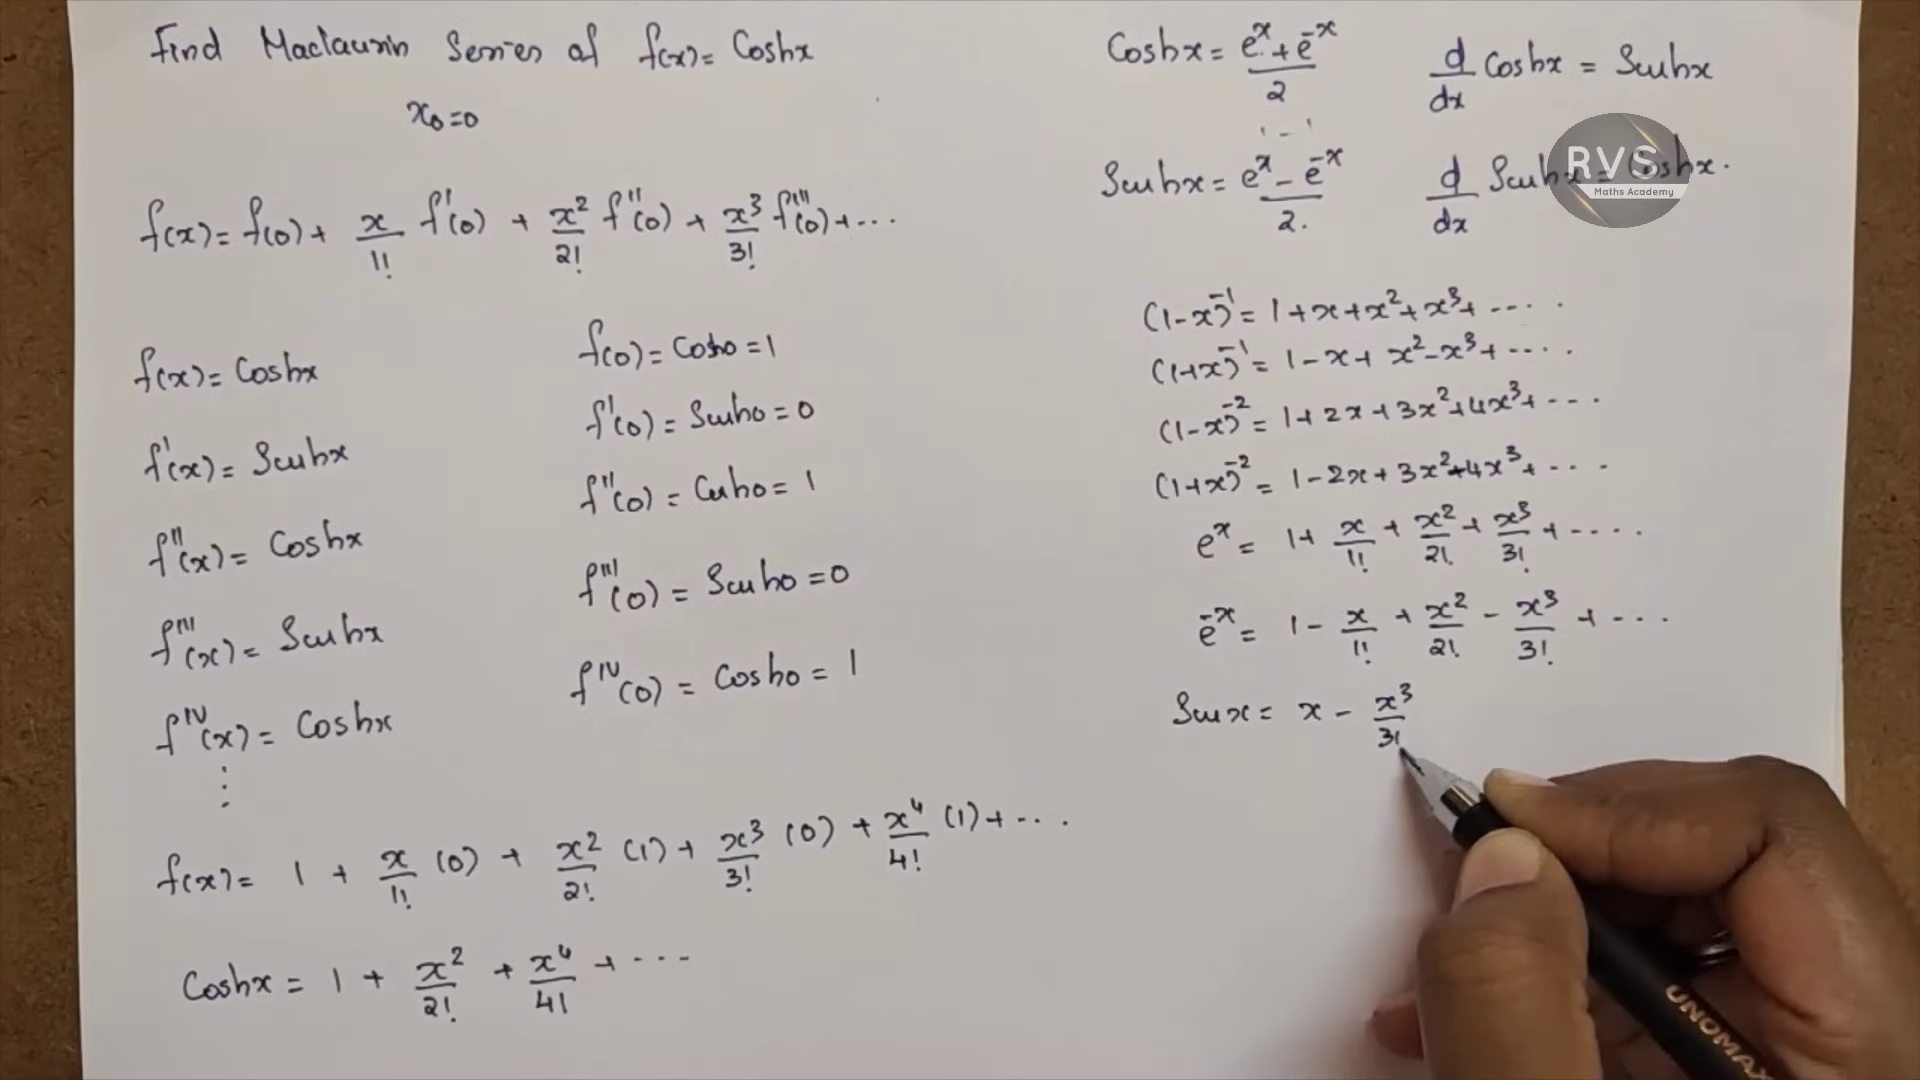 Find Maclaurin Series of f(x) = Coshx
x₀=0
f(x) = f(0) + x/1! f'(0) + x²/2! f''(0) + x³/3! f'''(0) + ...
f(x) = Coshx
f'(x) = Sinhx
f''(x) = Coshx
f'''(x) = Sinhx
f^IV(x) = Coshx
⋮
f(0) = Cosh0 = 1
f'(0) = Sinh0 = 0
f''(0) = Cosh0 = 1
f'''(0) = Sinh0 = 0
f^IV(0) = Cosh0 = 1
f(x) = 1 + x/1! (0) + x²/2! (1) + x³/3! (0) + x⁴/4! (1) + ...
Coshx = 1 + x²/2! + x⁴/4! + ...
Coshx = (e^x + e^-x)/2
d/dx Coshx = Sinhx
Sinhx = (e^x - e^-x)/2.
d/dx Sinhx = Coshx.
RVS
Maths Academy
(1-x)^-1 = 1+x+x²+x³+ ....
(1+x)^-1 = 1-x+x²-x³+ ....
(1-x)^-2 = 1+2x+3x²+4x³+ ...
(1+x)^-2 = 1-2x+3x²-4x³+ ...
e^x = 1 + x/1! + x²/2! + x³/3! + ....
e^-x = 1 - x/1! + x²/2! - x³/3! + ...
Sinx = x - x³/3!
UNOMAX